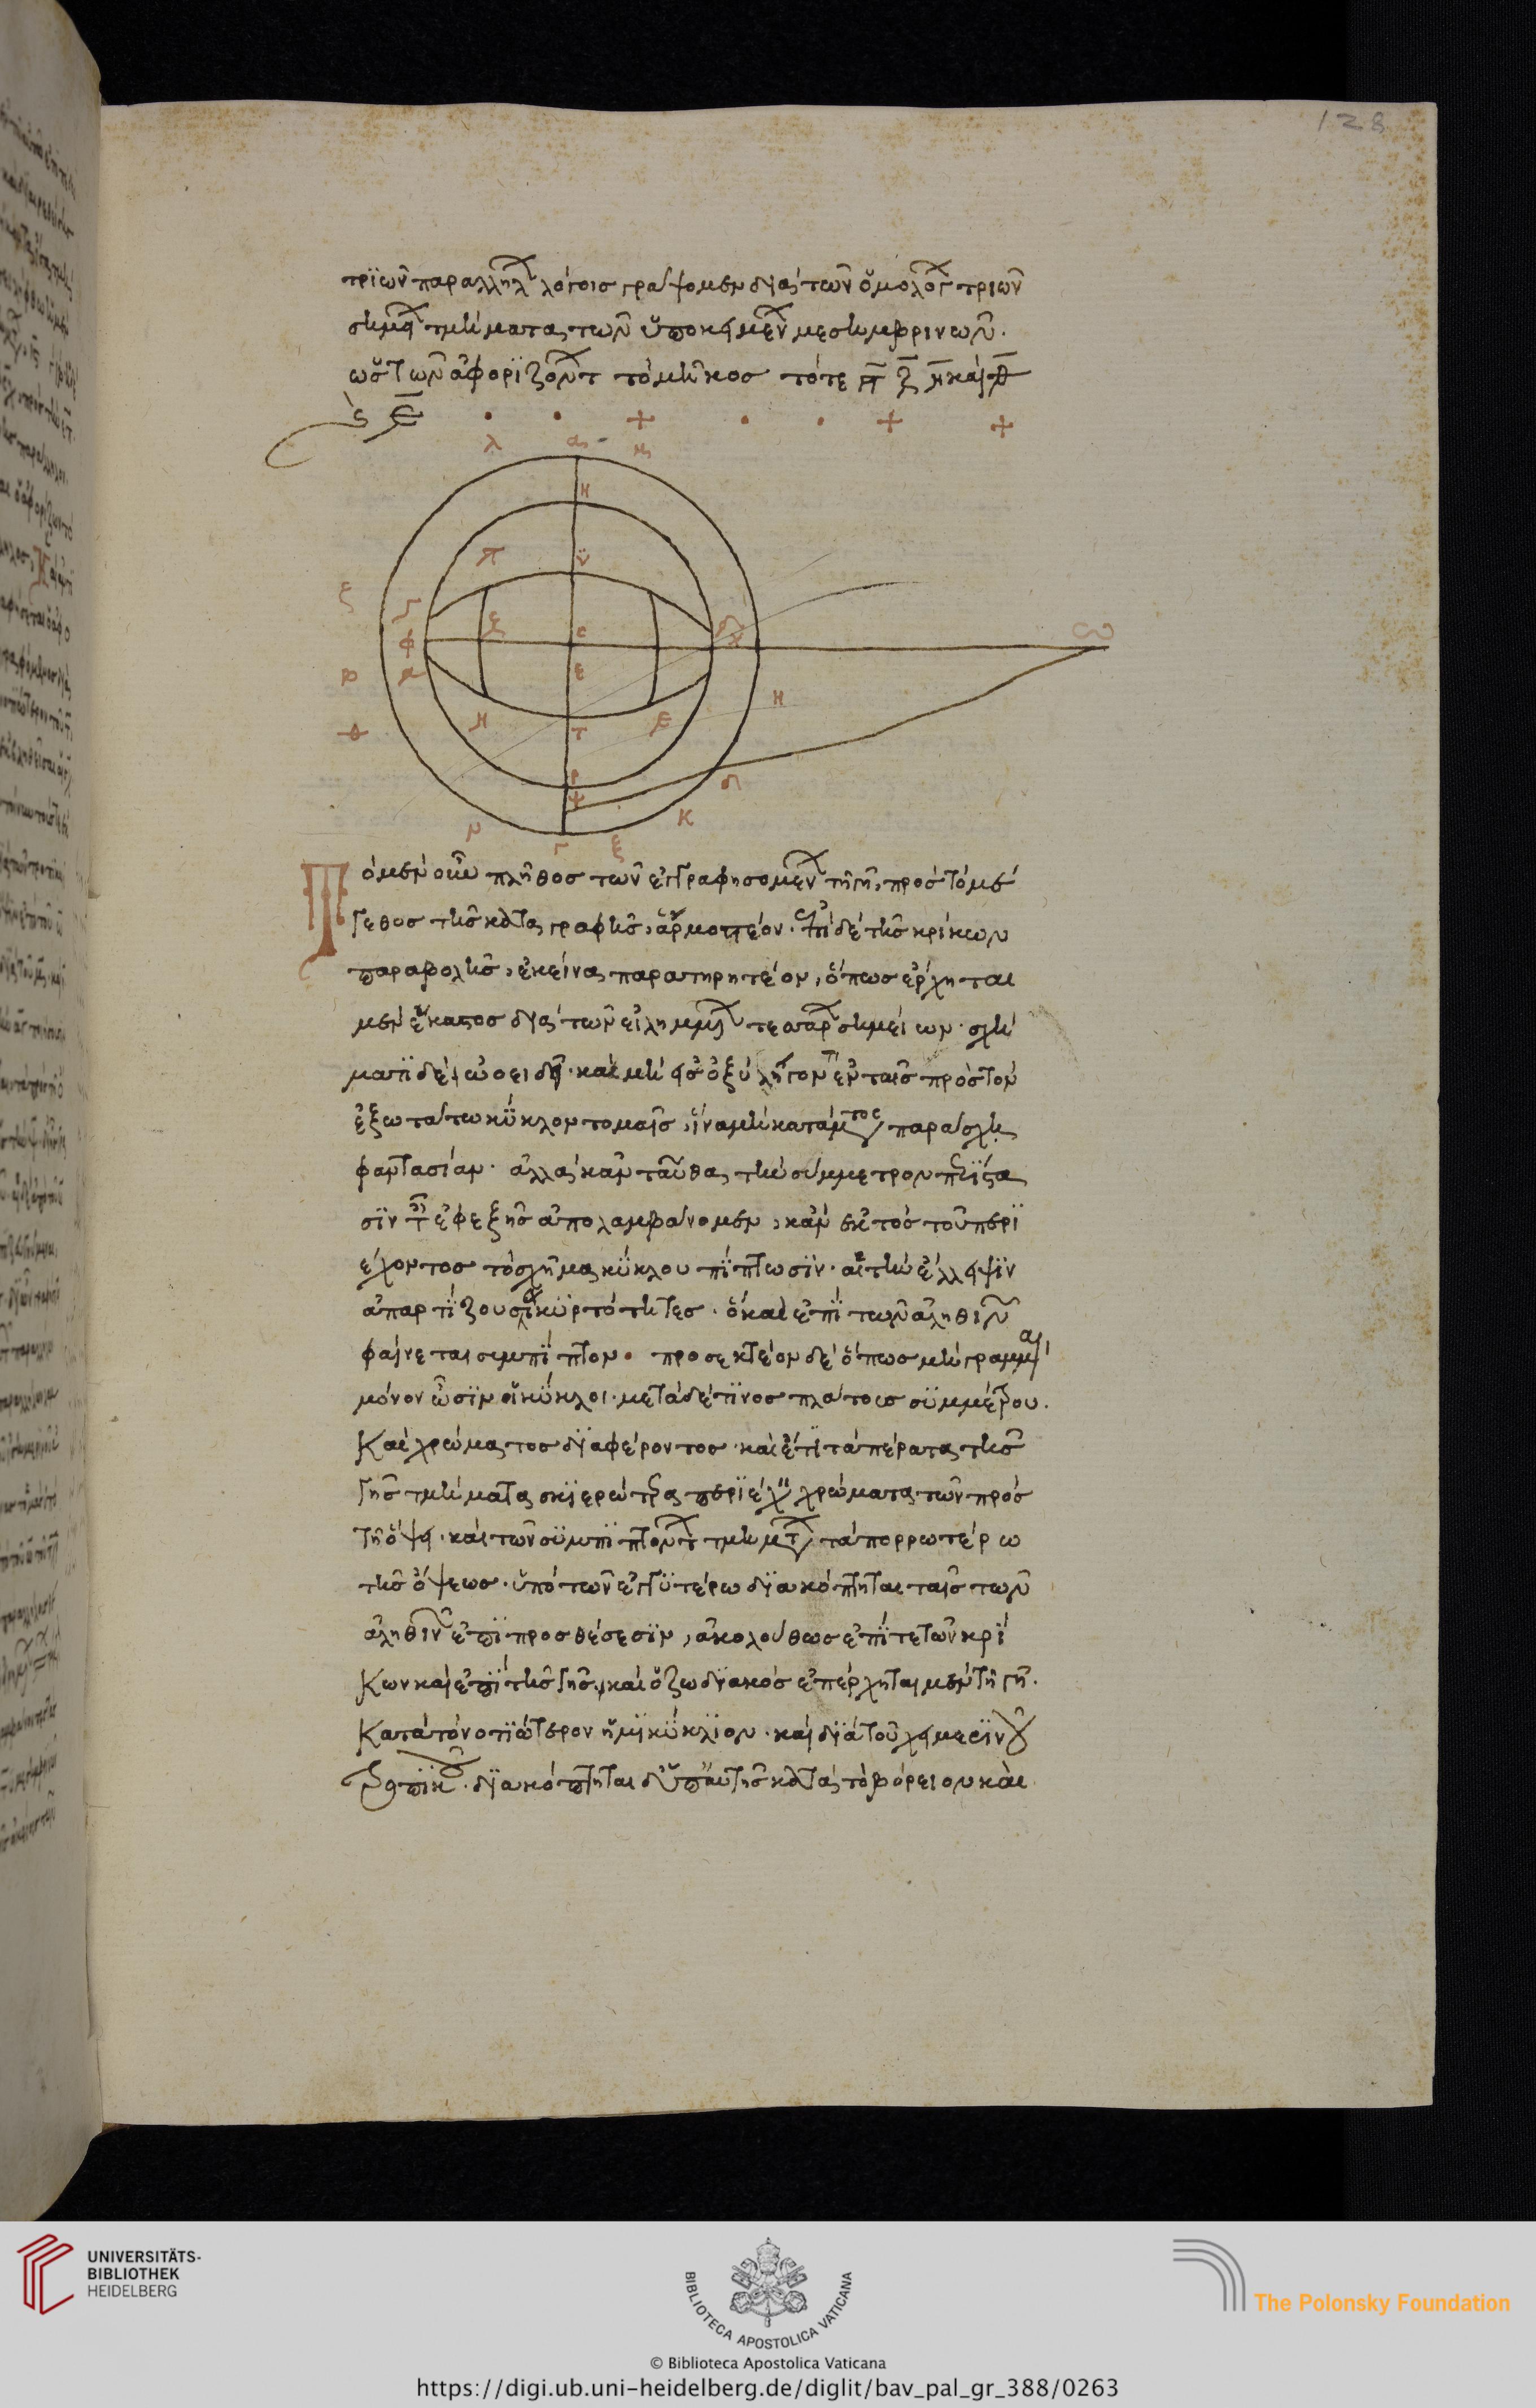 128
τρϊῶν παραλλήλ λόγοις γράψομεν διὰ τῶν ὁμολόγ τριῶν
σημεί τμήματα τῶν ὑποκειμέν μεσημβρινῶν.
ὡς τῶν ἀφορϊζόντ τὸ μῆκος τό τε
λ α μ
η
π ν
ξ ζ ξ ε δ χ ω
φ
ρ ε
θ η ε η
τ
ρ
ψ δ
κ
ν γ ξ
Τὸ μὲν οὖν πλῆθος τῶν ἐγγραφησομέν τῆ γῆ, πρὸς τὸ μέ
γεθος τῆς καταγραφῆς, ἁρμοστέον. ἐπὶ δὲ τῆς κρίκων
παραβολῆς, ἐκεῖνα παρατηρητέον, ὅπως ἔρχηται
μὲν ἕκαστος διὰ τῶν εἰλημμέν τεσσάρ σημείων. σχή
ματϊ δὲ ὠοειδεῖ. καὶ μὴ εἰς ὀξὺ λῆγον ἐν ταῖς πρὸς τὸν
ἐξωτάτω κύκλον τομαῖς, ἵνα μὴ κατάγματος παράσχη
φαντασίαν. ἀλλὰ κἀνταῦθα τὴν σύμμετρον
σϊν ἐφεξῆς ἀπολαμβάνομεν, κἂν ἐκτὸς τοῦ περϊ
έχοντος τὸ σχῆμα κύκλου πίπτωσϊν. αἱ τὴν ἔλλειψϊν
ἀπαρτϊζουσαι κυρτότητες. ὃ καὶ ἐπὶ τῶν ἀληθιν
φαίνεται συμπῖπτον. προσεκτέον δὲ ὅπως μὴ γραμμαὶ
μόνον ὦσϊν οἱ κύκλοι. μετὰ δέ τϊνος πλάτους συμμέτρου.
Καὶ χρώματος διαφέροντος. καὶ ἔτϊ τὰ πέρατα τῆς
γῆς τμήματα σκϊερώτερα περϊέχ χρώματα τῶν πρὸς
τῆ ὄψει. καὶ τῶν συμπϊπτόντ τμημάτ τὰ πορρωτέρω
τῆς ὄψεως. ὑπὸ τῶν ἐγγυτέρω διακόπτηται ταῖς τῶν
ἀληθιν ἐπϊπροσθέσεσϊν, ἀκολούθως ἐπί τε τῶν κρί
κων καὶ ἐπὶ τῆς γῆς, καὶ ὁ ζωδιακὸς ἐπέρχηται μὲν τῆ γῆ.
Κατὰ τὸ νοτιώτερον ἡμϊκύκλϊον. καὶ διὰ τοῦ χειμερϊνοῦ
τροπϊκ. διακόπτηται δ' ὑπ' αὐτῆς κατὰ τὸ βόρειον καὶ
UNIVERSITÄTS-
BIBLIOTHEK
HEIDELBERG
BIBLIOTECA APOSTOLICA VATICANA
The Polonsky Foundation
© Biblioteca Apostolica Vaticana
https://digi.ub.uni-heidelberg.de/diglit/bav_pal_gr_388/0263